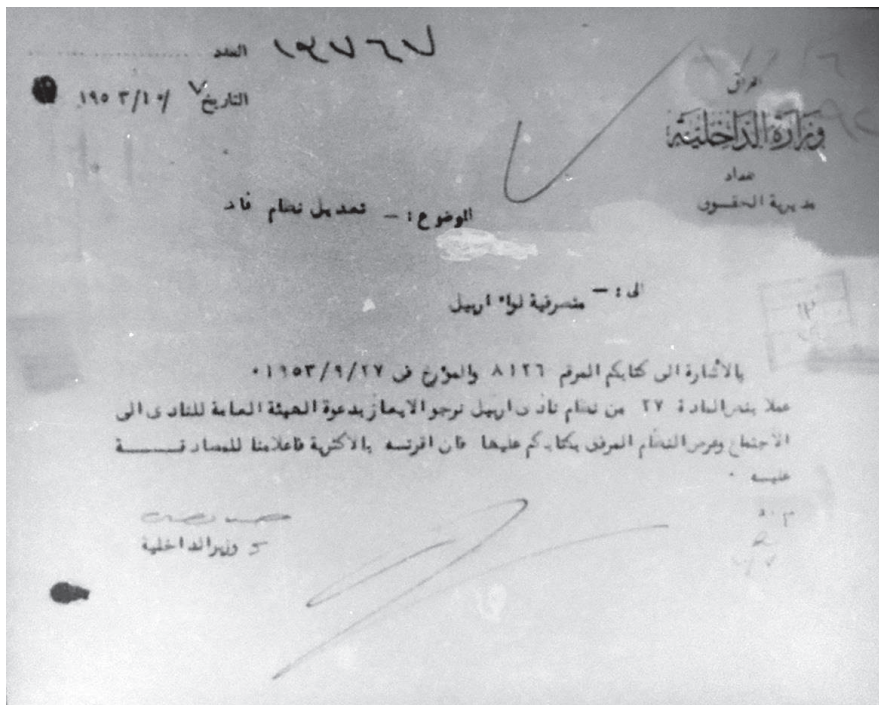 العدد ١٣٧٦٧
التاريخ ٧ /١٠/ ١٩٥٣
العراق
وزارة الداخلية
بغداد
مديرية الحقوق
الموضوع :- تعديل نظام ناد
الى :- متصرفية لواء اربيل
بالاشارة الى كتابكم المرقم ٨١٢٦ والمؤرخ في ١٩٥٣/٩/٢٧ ٠
عملا بنص المادة ٢٧ من نظام نادي اربيل نرجو الايعاز بدعوة الهيئة العامة للنادى الى
الاجتماع وعرض النظام المرفق بكتابكم عليها فان اقرته بالاكثرية فاعلامنا للمصادقــــــة
عليه ٠
وزير الداخلية